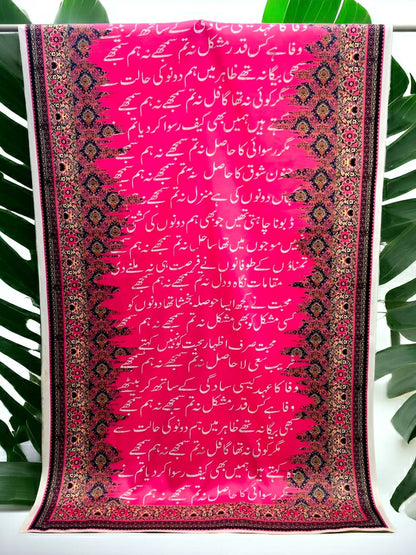 وفا کا عہد کیسی سادگی کے ساتھ کر بیٹھے
وفا ہے کس قدر مشکل نہ تم سمجھے نہ ہم سمجھے
بھی بیگانہ تھے ظاہر میں ہم دونوں کی حالت سے
مگر کوئی نہ تھا غافل نہ تم سمجھے نہ ہم سمجھے
کہتے ہیں ہمیں بھی کیف رسوا کر دیا تم نے
مگر رسوائی کا حاصل نہ تم سمجھے نہ ہم سمجھے
جنون شوق کا حاصل نہ تم سمجھے نہ ہم سمجھے
دونوں کی ہے منزل نہ تم سمجھے نہ ہم سمجھے
ڈبونا چاہتی تھیں جو بھی ہم دونوں کی کشتی
موجوں میں تھا ساحل نہ تم سمجھے نہ ہم سمجھے
تمناؤں کے طوفانوں نے فرصت ہی نہ ملنے دی
مقامات نگاہ و دل نہ تم سمجھے نہ ہم سمجھے
محبت نے کچھ ایسا حوصلہ بخشا تھا دونوں کو
کسی مشکل کو بھی مشکل نہ تم سمجھے نہ ہم سمجھے
محبت صرف اظہار محبت کو نہیں کہتے
سعی لا حاصل نہ تم سمجھے نہ ہم سمجھے
وفا کا عہد کیسی سادگی کے ساتھ کر بیٹھے
وفا ہے کس قدر مشکل نہ تم سمجھے نہ ہم سمجھے
بھی بیگانہ تھے ظاہر میں ہم دونوں کی حالت سے
مگر کوئی نہ تھا غافل نہ تم سمجھے نہ ہم سمجھے
کہتے ہیں ہمیں بھی کیف رسوا کر دیا تم نے
مگر رسوائی کا حاصل نہ تم سمجھے نہ ہم سمجھے